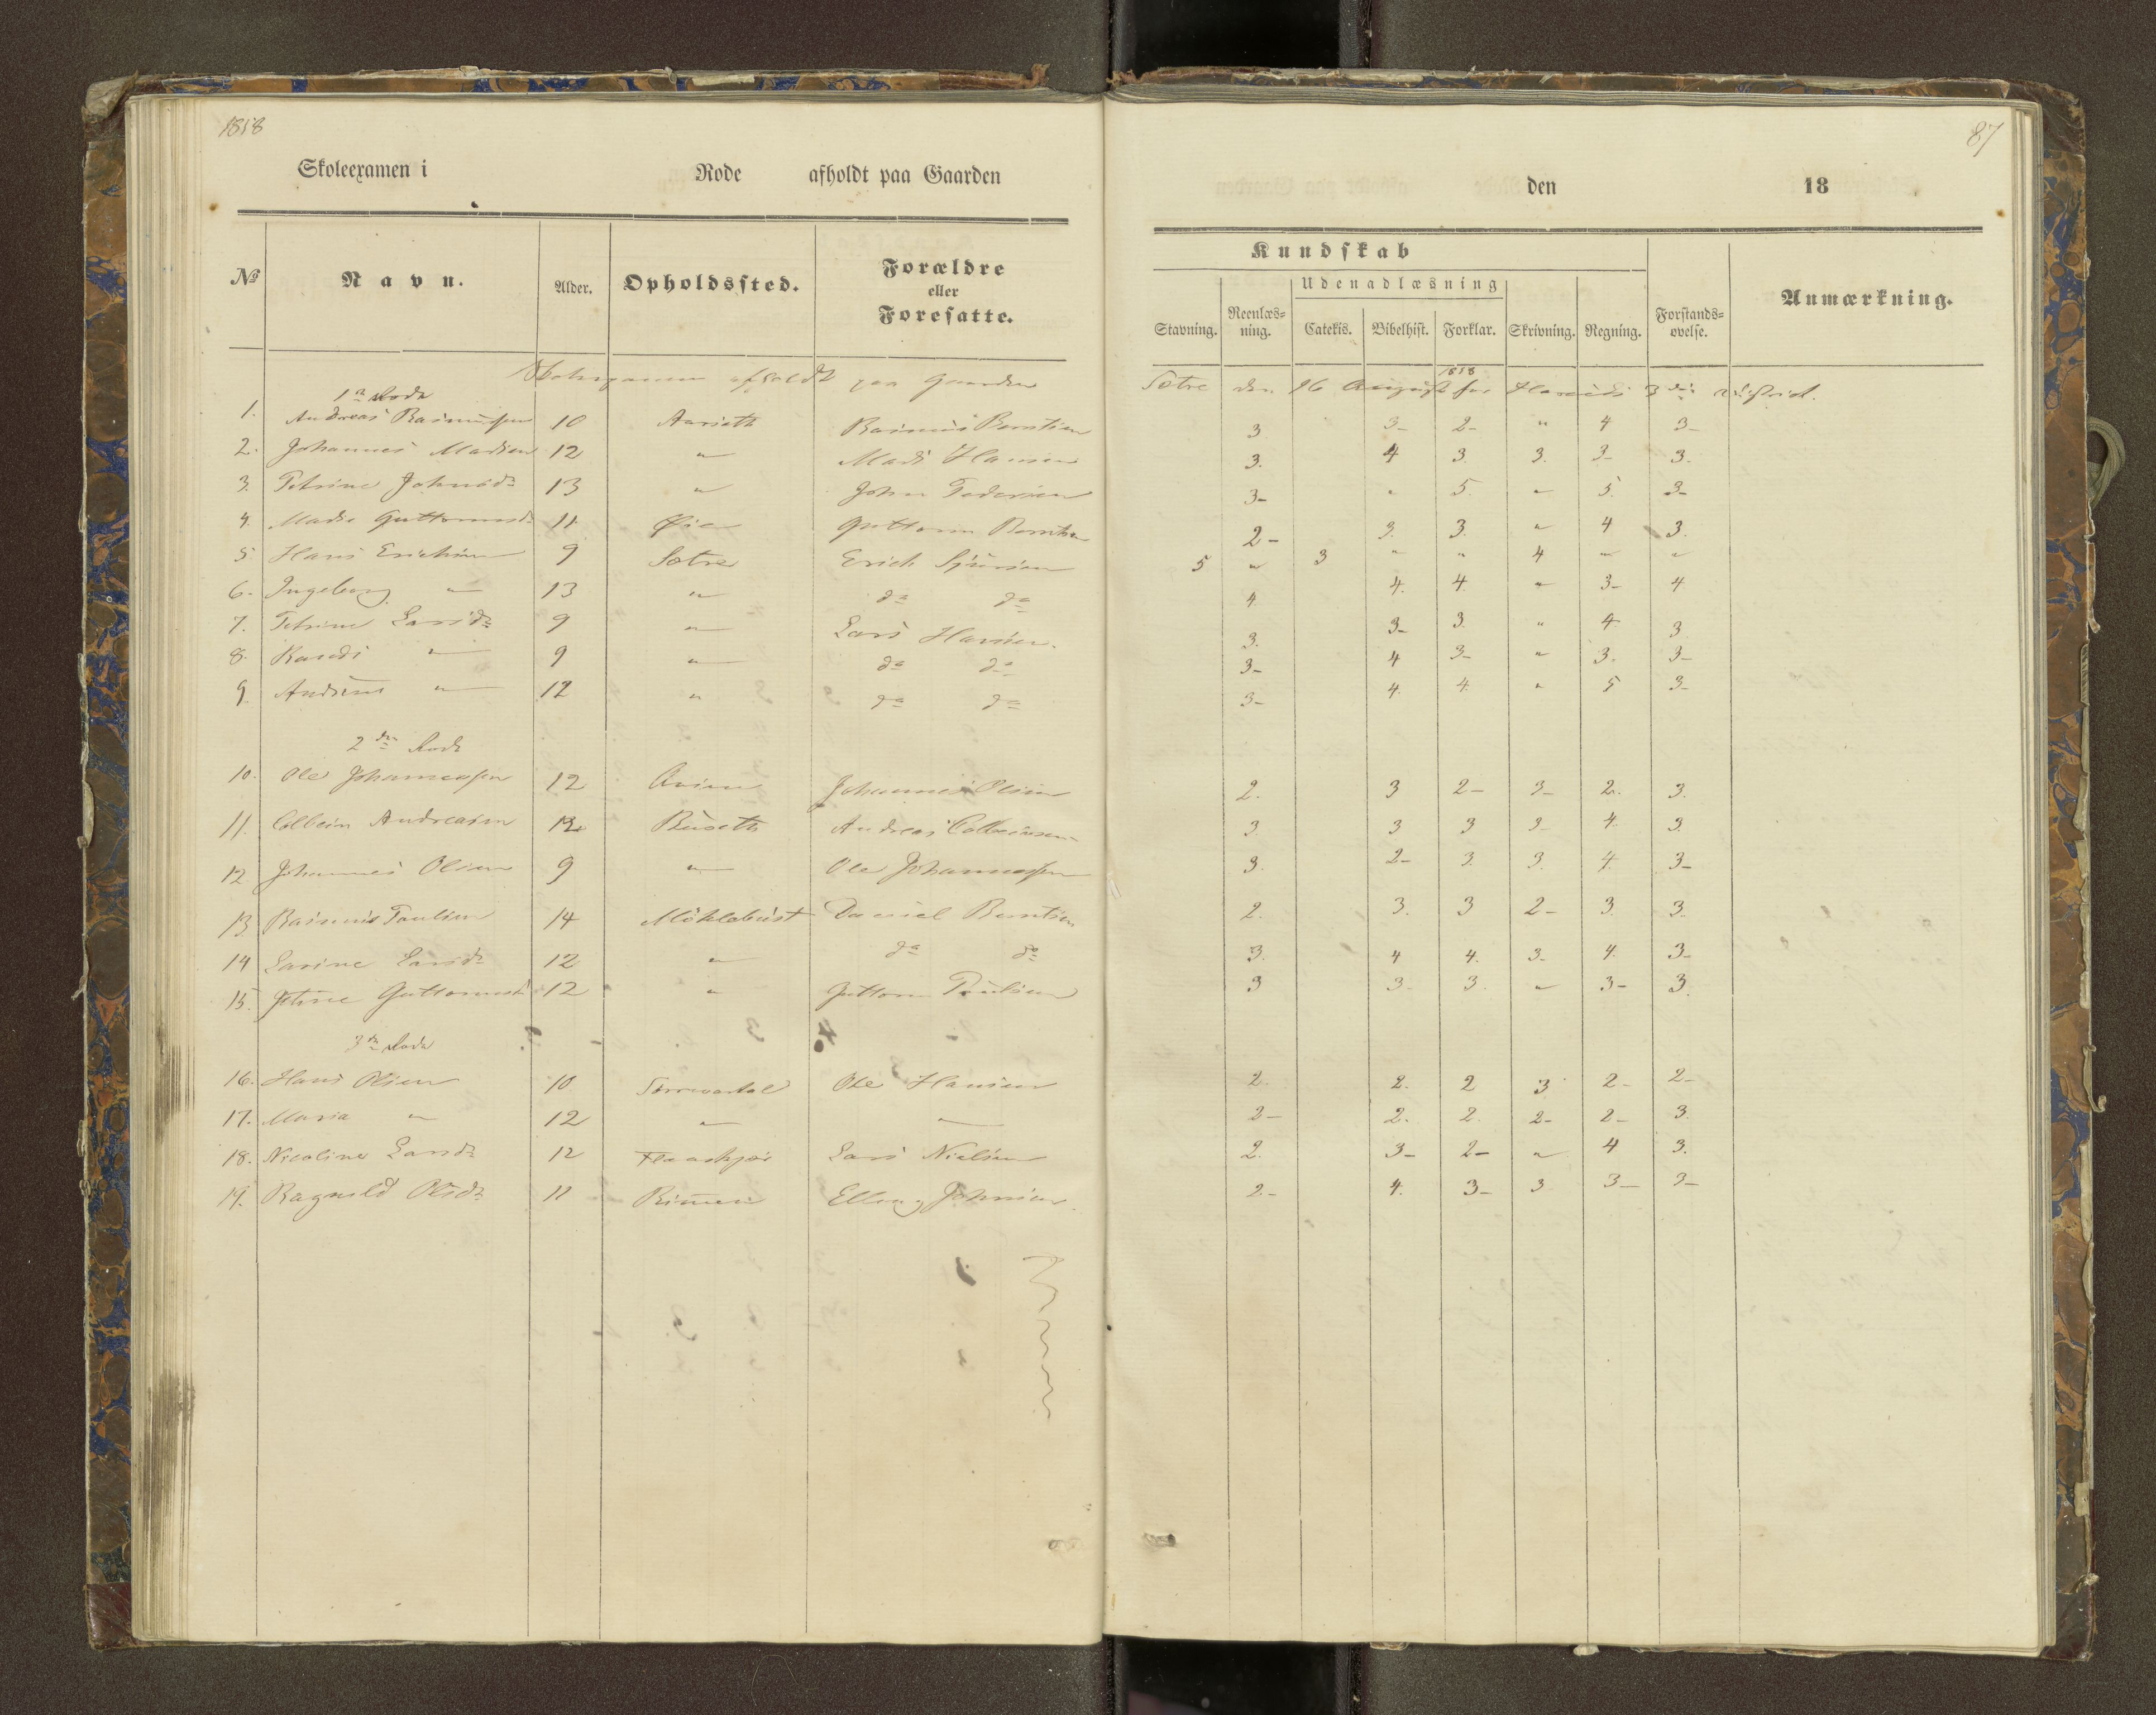 1858
87
Skoleexamen i Rode afholdt paa Gaarden den 18
No Navn. Alder. Opholdssted. Forældre eller Foresatte. Kundskab Stavning. Reenlæs=ning. Udenadlæsning Catekis. Bibelhist. Forklar. Skrivning. Regning. Forstands=øvelse. Anmærkning.
afholdt paa Gaarden Sætre den 16 August 1858 for Hareids 3die
1ste Rode
1. Andreas Rasmussen 10 Aarseth Rasmus Berntsen 3 3- 2- " 4 3-
2. Johannes Madsen 12 " Mads Hansen 3. 4 3. 3. 3- 3.
3. Petrine Johnsdr 13 " John Pedersen 3- " 5. " 5. 3-
4. Madse Guttormsdr 11 Øien Guttorm Berntsen 2- 3. 3. " 4 3.
5 Hans Erichsen 9 Sætre Erich Sjursen 5 " 3 " " 4 " "
6. Ingeborg " 13 " do do 4 4. 4. " 3- 4
7. Petrine Larsdr 9 " Lars Hansen. 3. 3- 3. " 4. 3
8. Randi " 9 " do do 3- 4 3- " 3. 3-
9. Andrine " 12 " do do 3- 4. 4. " 5 3-
2den Rode
10. Ole Johannessen 12 Johannes Olsen 2. 3 2- 3- 2. 3.
11. Colbein Andreasen 12 Röiseth Andreas Colbeinsen 3. 3 3 3- 4. 3.
12 Johannes Olsen 9 " Ole Johannessen 3. 2- 3. 3. 4. 3-
13. Rasmus Paulsen 14 Möklebust Daniel Berntsen 2. 3. 3 2- 3. 3.
14 Larine Larsdr 12 " do do 3. 4 4. 3- 4. 3-
15. Jetine Guttormsdr 12 " Guttorm Paulsen 3 3- 3. " 3- 3.
3die Rode
16. Hans Olsen 10. Ole Hansen 2. 2. 2 3 2- 2-
17. Maria " 12 " " 2- 2. 2. 2- 2- 3.
18. Nicoline Larsdr 12 Lars Nielsen 2. 3- 2- " 4 3.
19. Ragnild Olsdr 11 Elling Johnsen. 2- 4. 3- 3 3- 3-